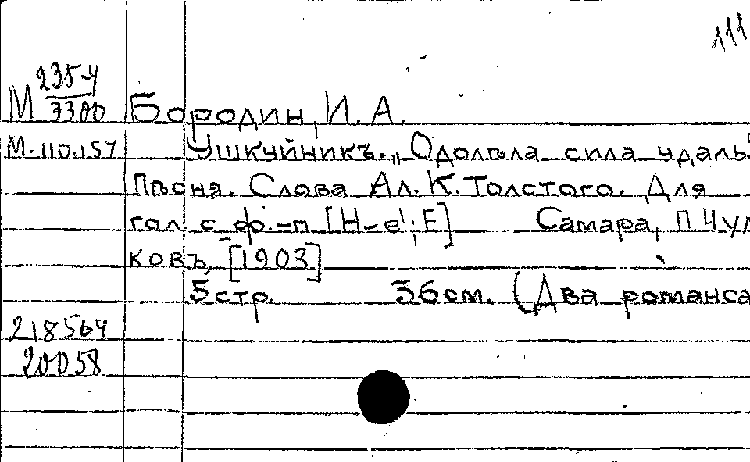 111
М 235-4/3300 Бородин, И. А.
М-110.157 Ушкуйникъ. „Одолѣла сила удаль
Пѣсня. Слова Ал. К. Толстого. Для
гол. с ф.-п [H-e¹; E] Самара, П Чул
ковъ, [1903]
5 стр. 36 см. (Два романса
218564
20058